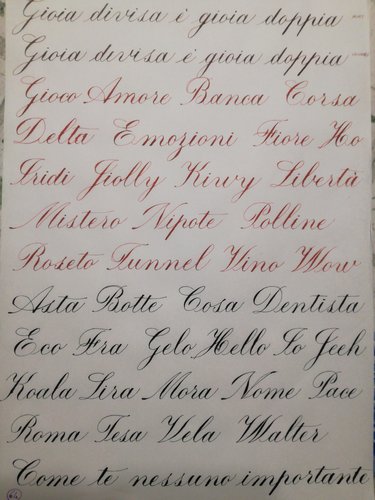 Gioia divisa è gioia doppia
Gioia divisa è gioia doppia
Gioco Amore Banca Corsa
Delta Emozioni Fiore Ho
Iridi Jiolly Kiwy Libertà
Mistero Nipote Polline
Roseto Tunnel Vino Wow
Asta Botte Cosa Dentista
Eco Fra Gelo Hello Io Jeeh
Koala Lira Mora Nome Pace
Roma Tesa Vela Walter
Come te nessuno importante